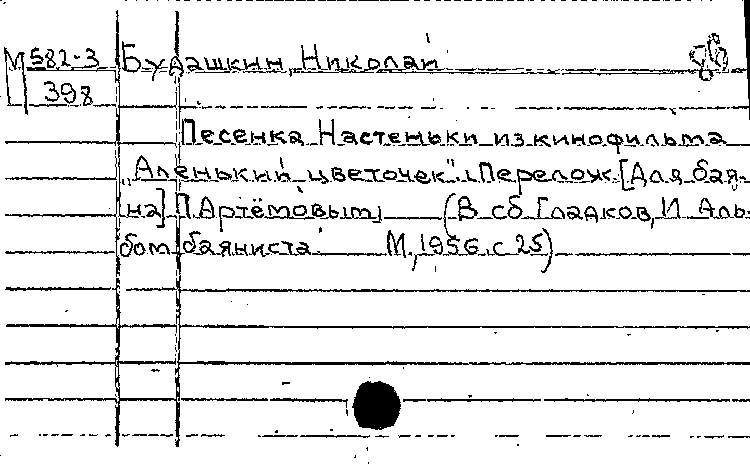 М 582-3 Будашкин, Николай
398
Песенка Настеньки из кинофильма
„Аленький цветочек". Перелож. [Для бая-
на] П. Артёмовым (В сб. Гладков, И. Аль-
бом баяниста. М., 1956. с 25)